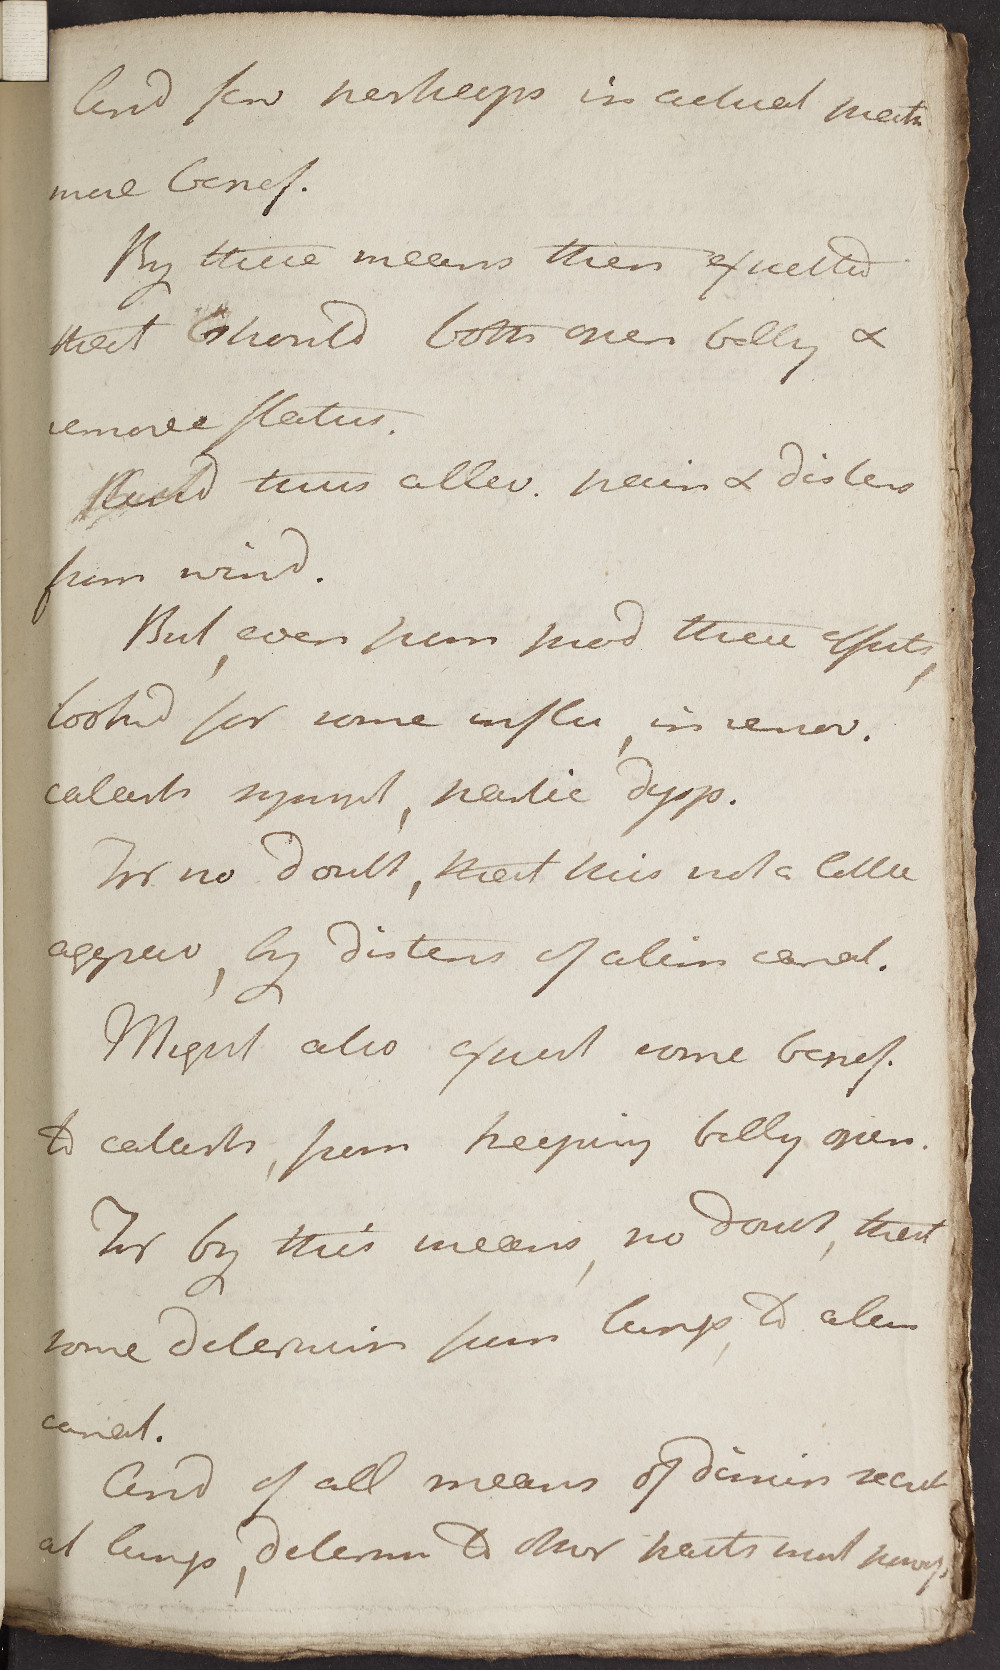 And few perhaps in actual pract
more benef.
By these means then expected
that should both open belly &
remove flatus.
And thus allev. pain & distens
from wind.
But, even from prod these effects,
look'd for some influ, in remov.
catarrh sympt, partic dysp.
For no doubt, that this not a little
aggrav, by distens of alim canal.
Might also expect some benef.
to catarrh, from keeping belly open.
For by this means, no doubt, that
some determin from lungs, to alim
canal.
And of all means of dimin secret
at lungs, determ to other parts most power.